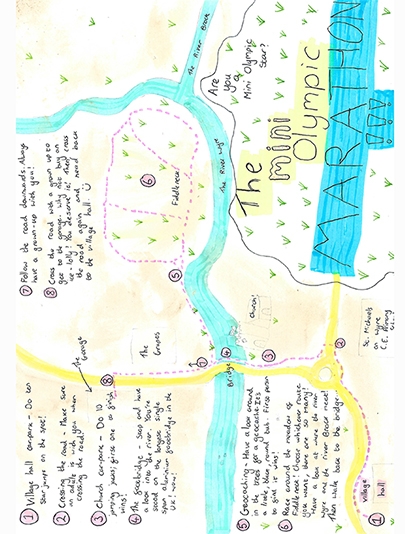 The
mini
Olympic
MARATHON
Are
you
a
Mini Olympic
Star?
The River Brock
The River Wyre
Fiddlereck!
6
5
4
Bridge
7
3
Church!
2
St. Michaels
on Wyre
C.E. Primary
8
The Grapes
The Garage
1
Village
hall
1 Village hall car-park - Do ten
star jumps on the spot!
2 Crossing the road - Make sure
an adult is with you when
crossing the road!
3 Church car-park - Do 10
jumping jacks, first one to finish
wins!
4 The footbridge - Stop and have
a look into the river. You're
stood on the longest single
span footbridge in the
UK! Wow!
5 Geocaching - Have a look around
in the trees for a geocache. It's
a black round tub. First person
to find it wins!
6 Race around the meadow of
Fiddlereck! Choose whichever route
you want, there are so many!
Have a look at where the river
Wyre and the river Brock meet!
Then walk back to the bridge.
7 Follow the road downwards. Always
have a grown-up with you!
8 Cross the road with a grown up to
get to the garage. Why not buy an
ice lolly? You deserve it! Then cross
the road again and head back
to the village hall.